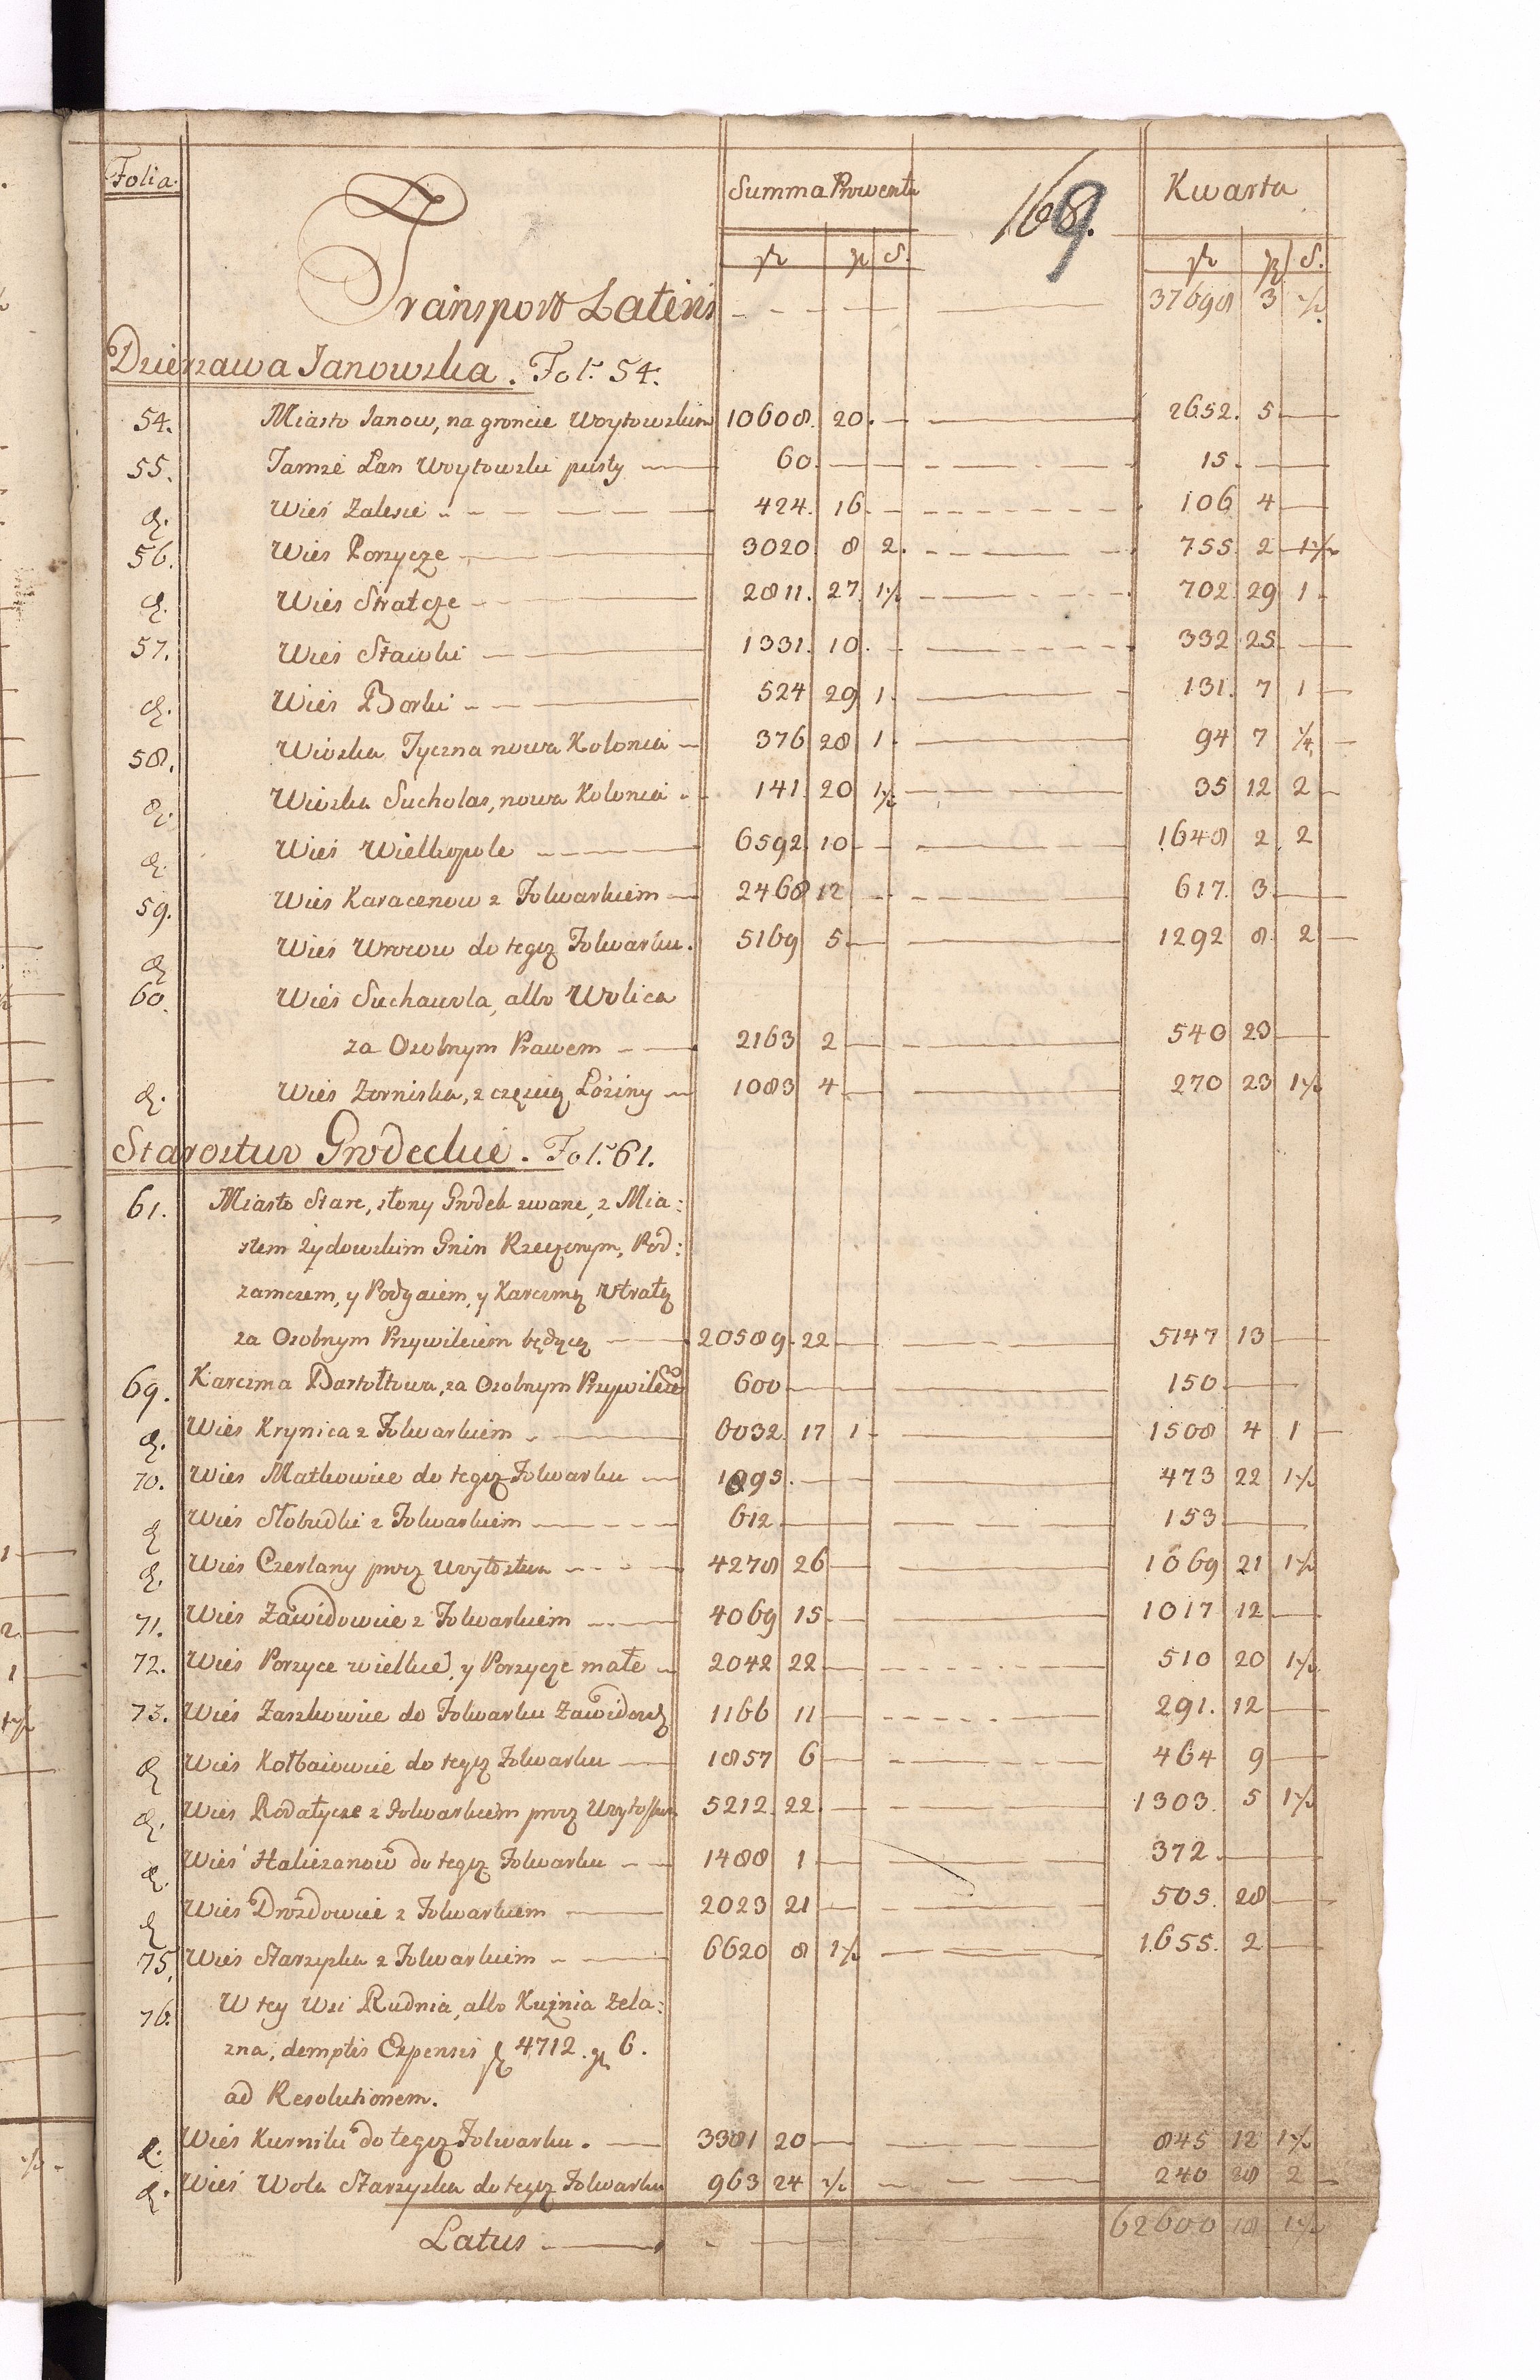 Folia.
Summa Prowentu
169.
Kwarta
zł gr S.
zł gr S.
Transport Lateris 37698 3 1/2
Dzierzawa Janowska. Fol: 54.
54. Miasto Janow, na groncie Woytowskim 10608. 20. 2652. 5
55. Tamże Łan Woytowski pusty 60. 15.
d. Wieś Zalesie 424. 16. 106 4
56. Wieś Porzycze 3020. 8 2. 755. 2 1 1/2
d. Wieś Stratcze 2811. 27. 1 1/2 702. 29 1
57. Wieś Stawki 1331. 10. 332 25.
d. Wieś Borki 524 29 1. 131. 7 1
58. Wioska Tyczna nowa Kolonia 376 28 1. 94 7 1/4
d. Wioska Sucholas, nowa Kolonia 141. 20 1 1/2 35 12 2
d. Wieś Wielkopole 6592. 10. 1648 2 2
59. Wieś Karacenow z Folwarkiem 2468 12 617. 3
d. Wieś Wrocow do tegoz Folwarku. 5169 5. 1292 8. 2
60. Wieś Suchawola, albo Wolica
za Osobnym Prawem 2163 2 540 23
d. Wieś Zorniska, z częścią Łoziny 1083 4 270 23 1 1/2
Starostwo Grodeckie. Fol: 61.
61. Miasto Stare, słony Grodek zwane, z Mia:
stem Żydowskim Gnin Rzeczonym, Pod:
zamczem, y Podgaiem, y Karczmą Utratą
za Osobnym Przywileiem będącą 20589. 22 5147 13
69. Karczma Bartołtowa, za Osobnym Przywileiem 600 150
d. Wieś Krynica z Folwarkiem 6032. 17 1 1508 4 1
70. Wieś Matkowice do tegoz Folwarku 1895. 473 22 1 1/2
d. Wieś Słobudki z Folwarkiem 612 153
d. Wieś Czerlany procz Woytostwa 4278 26 1069 21 1 1/2
71. Wieś Zawidowice z Folwarkiem 4069 15 1017 12
72. Wieś Porzyce wielkie, y Porzycze małe 2042 22 510 20 1 1/2
73. Wieś Zaszkowice do Folwarku Zawidow 1166 11 291. 12
d. Wieś Kołbaiowice do tegoz Folwarku 1857 6 464 9
d. Wieś Rodatycze z Folwarkiem procz Woytostwa 5212. 22. 1303. 5 1 1/2
d. Wieś Haliczanow do tegoz Folwarku 1488 1 372.
d. Wieś Drozdowice z Folwarkiem 2023 21 505. 28
75. Wieś Starzyska z Folwarkiem 6620 8 1 1/2 1655. 2
76. W tey Wsi Rudnia, albo Kuźnia żela:
zna, demptis Expensis fl 4712. gr 6.
ad Resolutionem.
d. Wieś Kurniki do tegoz Folwarku. 3381 20 845 12 1 1/2
d. Wieś Wola Starzyska do tegoz Folwarku 963 24 1/2 240 28 2
Latus 62600 18 1 1/2